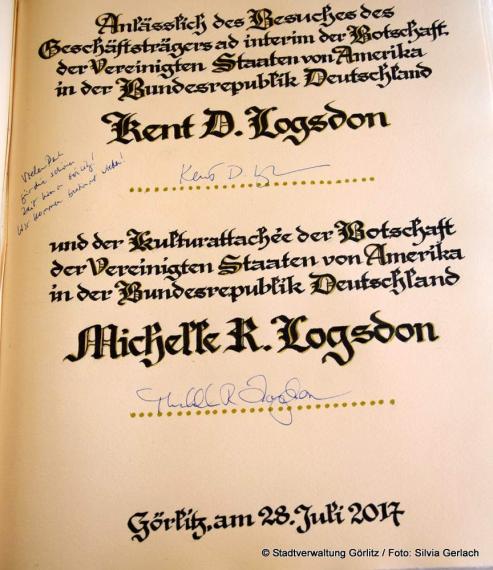 Anlässlich des Besuches des
Geschäftsträgers ad interim der Botschaft
der Vereinigten Staaten von Amerika
in der Bundesrepublik Deutschland
Kent D. Logsdon
Vielen Dank
für die schöne
Zeit hier in Görlitz!
Wir kommen bestimmt wieder!
Kent D.
und der Kulturattachée der Botschaft
der Vereinigten Staaten von Amerika
in der Bundesrepublik Deutschland
Michelle R. Logsdon
Michelle R Logsdon
Görlitz, am 28. Juli 2017
© Stadtverwaltung Görlitz / Foto: Silvia Gerlach